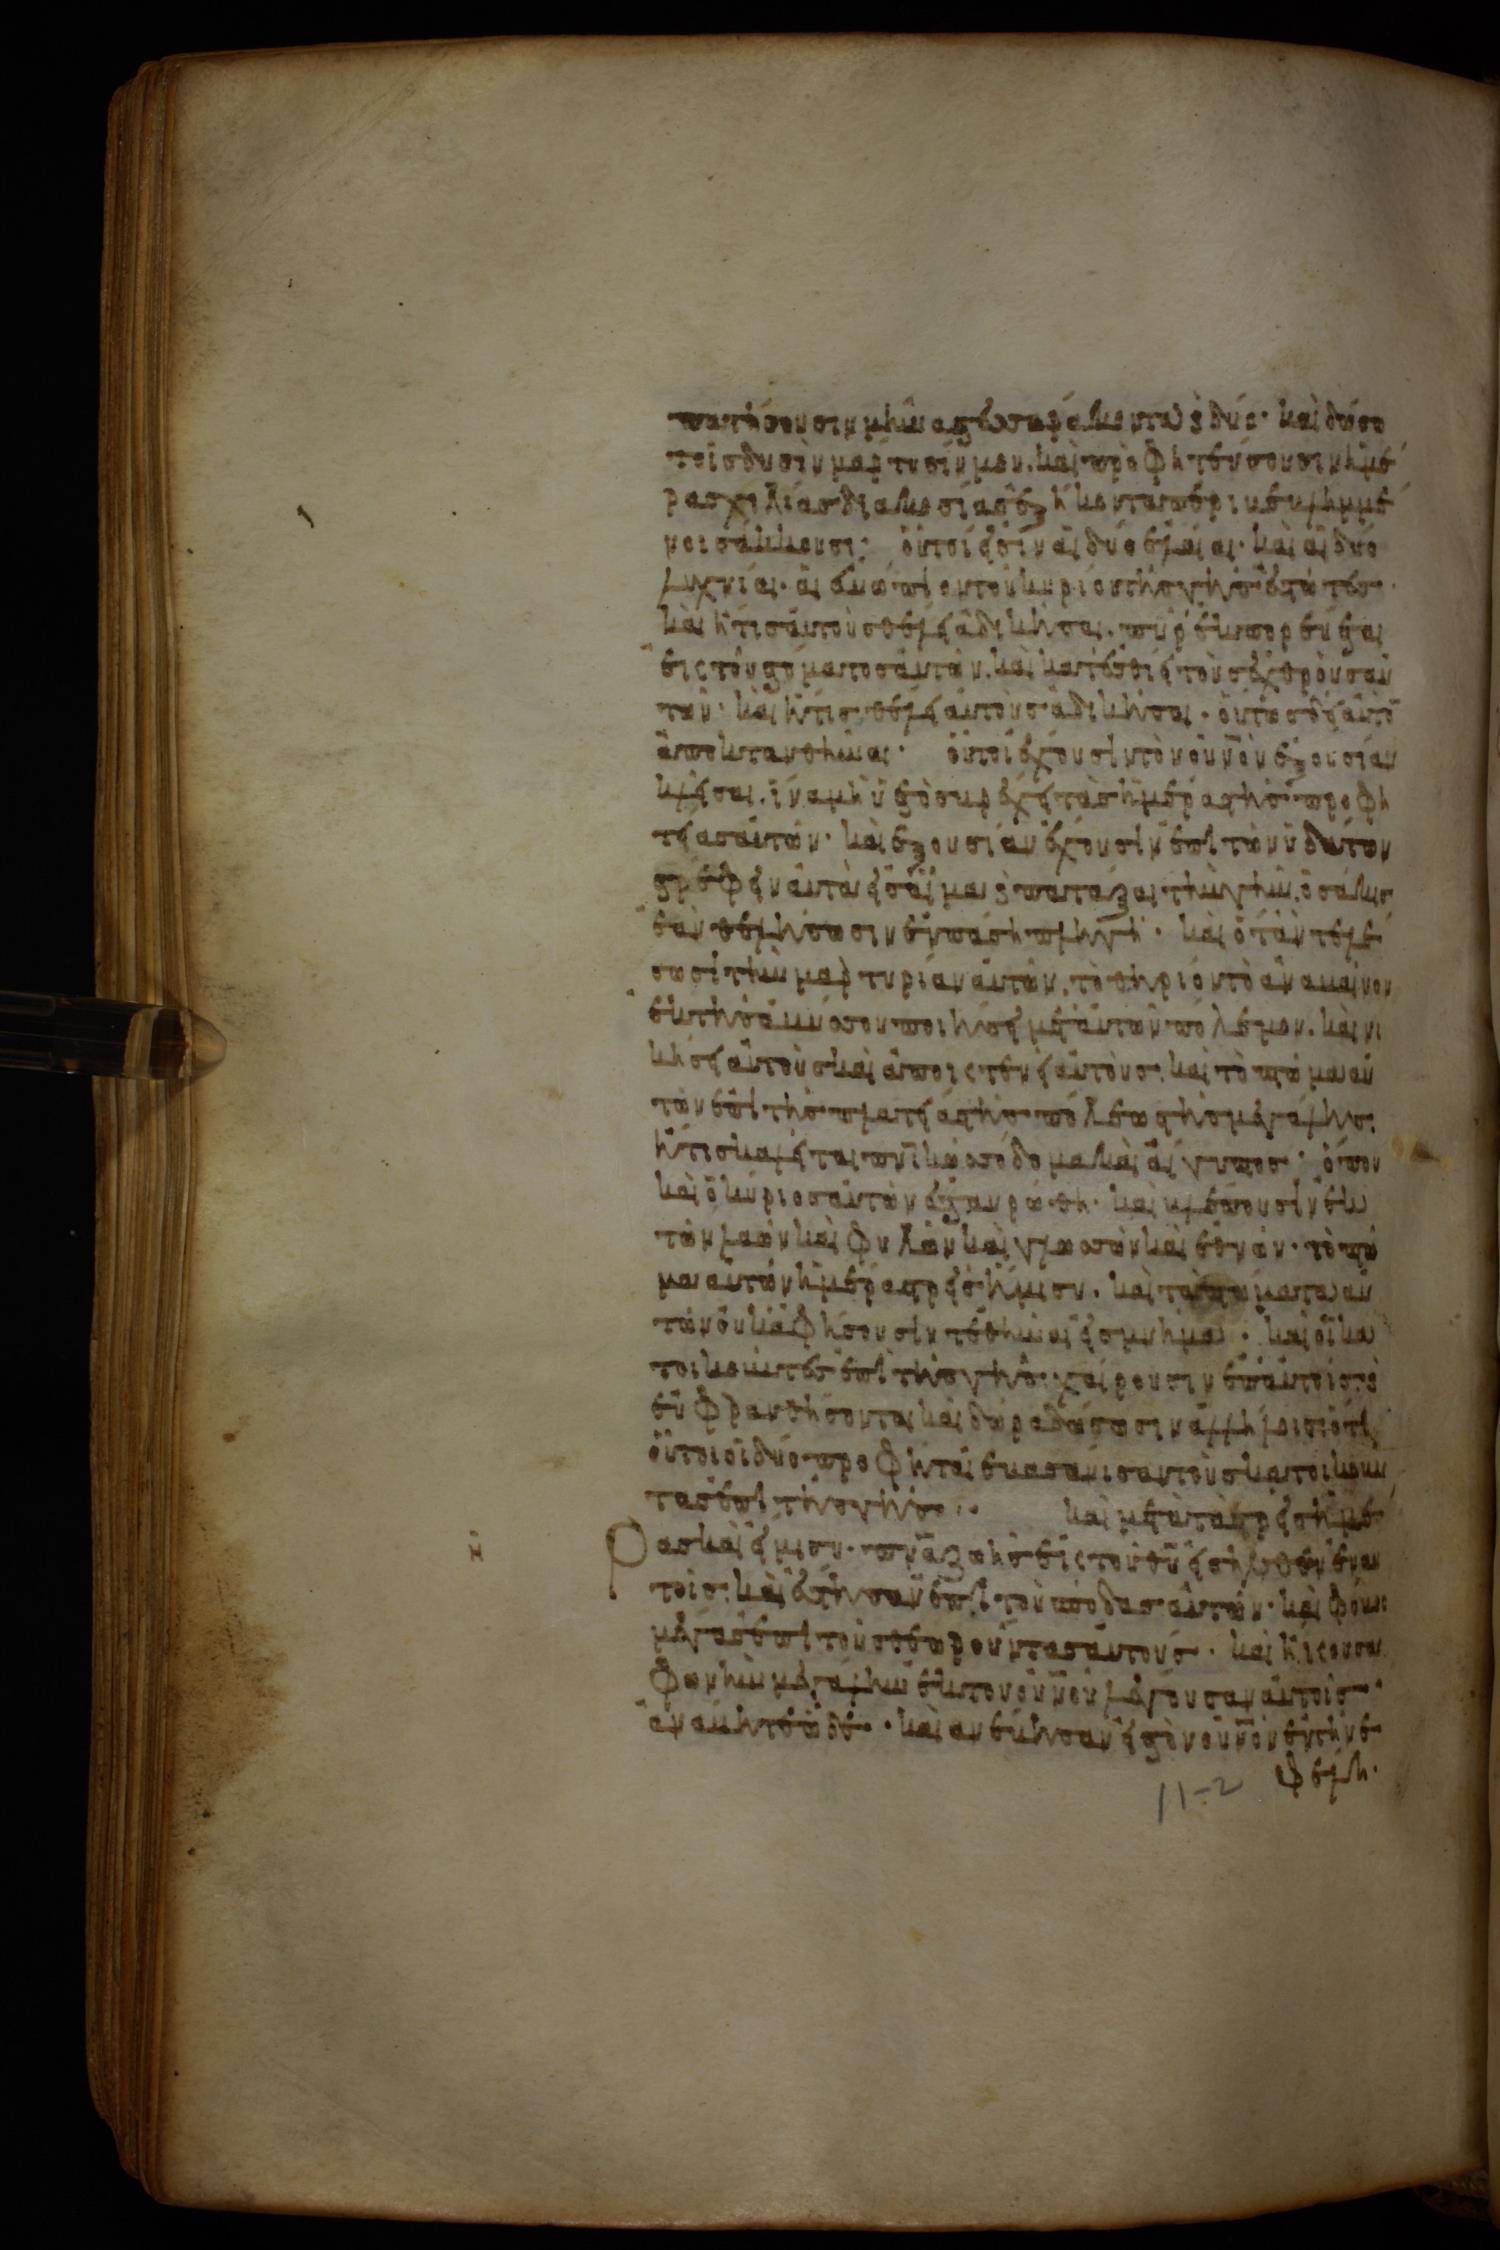 πατήσουσιν μῆνας τεσσαράκοντα δύο· καὶ δώσω
τοῖς δυσὶν μάρτυσίν μου. καὶ προφητεύσουσιν ἡμέ
ρας χιλίας διακοσίας ἑξήκοντα περιβεβλημμέ
νοι σάκκους· οὗτοί εἰσιν αἱ δύο ἐλαῖαι· καὶ αἱ δύο
λυχνίαι· αἱ ἐνώπιον τοῦ κυρίου τῆς γῆς ἑστῶτες·
καὶ ἥτις αὐτοὺς θέλει ἀδικῆσαι. πῦρ ἐκπορεύεται
ἐκ τοῦ στόματος αὐτῶν. καὶ κατεσθίει τοὺς ἐχθροὺς αὐ
τῶν· καὶ ἥτις θέλει αὐτοὺς ἀδικῆσαι. οὕτως δεῖ αὐτὸ
ἀποκτανθῆναι· οὗτοι ἔχουσιν τὸν οὐνὸν ἐξουσίαν
κλεῖσαι. ἵνα μὴ ὑετὸς βρέχει τὰς ἡμέρας τῆς προφη
τείας αὐτῶν· καὶ ἐξουσίαν ἔχουσιν ἐπὶ τῶν ὑδάτων
στρέφειν αὐτὰ εἰς αἷμα καὶ πατάξαι τὴν γῆν. ὁσάκις
ἐὰν θελήσωσιν ἐν πάσῃ πληγῇ· καὶ ὅταν τελέ
σωσι τὴν μαρτυρίαν αὐτῶν. τὸ θηρίον τὸ ἀναβαῖνον
ἐκ τῆς ἀβύσσου ποιήσει μετ αὐτῶν πόλεμον. καὶ νι
κήσει αὐτοὺς καὶ ἀποκτενεῖ αὐτοὺς· καὶ τὸ πτῶμα αὐ
τῶν ἐπὶ τῆς πλατείας τῆς πόλεως τῆς μεγάλης·
ἥτις καλεῖται πνικῶς σόδομα καὶ αἴγυπτος· ὅπου
καὶ ὁ κύριος αὐτῶν ἐσταυρώθη· καὶ βλέπουσιν ἐκ
τῶν λαῶν καὶ φυλῶν καὶ γλωσσῶν καὶ ἐθνῶν· τὸ πτῶ
μα αὐτῶν ἡμέρας τρεῖς ἥμισυ. καὶ τὰ πτώματα αὐ
τῶν οὐκ ἀφήσουσιν τεθῆναι εἰς μνῆμα· καὶ οἱ κα
τοικοῦντες ἐπὶ τῆς γῆς χαίρουσιν ἐπ αὐτοῖς καὶ
εὐφρανθήσονται καὶ δῶρα δώσωσιν ἀλλήλοις ὅτι
οὗτοι οἱ δύο προφῆται ἐβασάνισαν τοὺς κατοικοῦν
τας ἐπὶ τῆς γῆς· καὶ μετὰ τὰς τρεῖς ἡμέ
ρας καὶ εἵμισυ· πνα ζωῆς ἐκ τοῦ θυ εἰσῆλθεν ἐν αὐ
τοῖς· καὶ ἔστησαν ἐπὶ τοὺς πόδας αὐτῶν· καὶ φόβος
μέγας ἐπὶ τοὺς θεωροῦντας αὐτούς· καὶ ἤκουσα
φωνὴν μεγάλην ἐκ τοῦ οὐνοῦ λέγουσαν αὐτοῖς·
ἀνάβητε ὧδε· καὶ ἀνέβησαν εἰς τὸν οὐνὸν ἐν τῇ νε
φέλῃ·
11-2